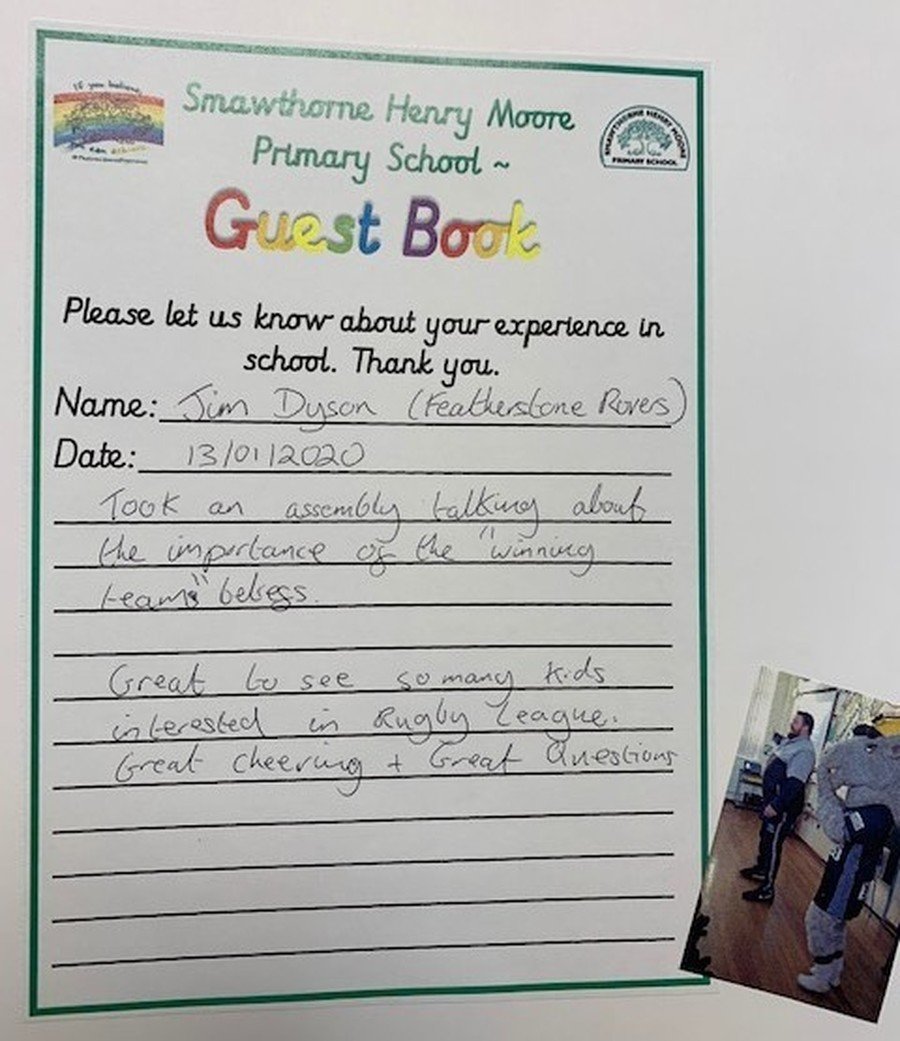 If you believe,
you can achieve
Smawthorne Henry Moore
Primary School ~
SMAWTHORNE HENRY MOORE
PRIMARY SCHOOL
Guest Book
Please let us know about your experience in
school. Thank you.
Name: Jim Dyson (Featherstone Rovers)
Date: 13/01/2020
Took an assembly talking about
the importance of the "winning
teams"
Great to see so many kids
interested in Rugby League.
Great cheering + Great Questions